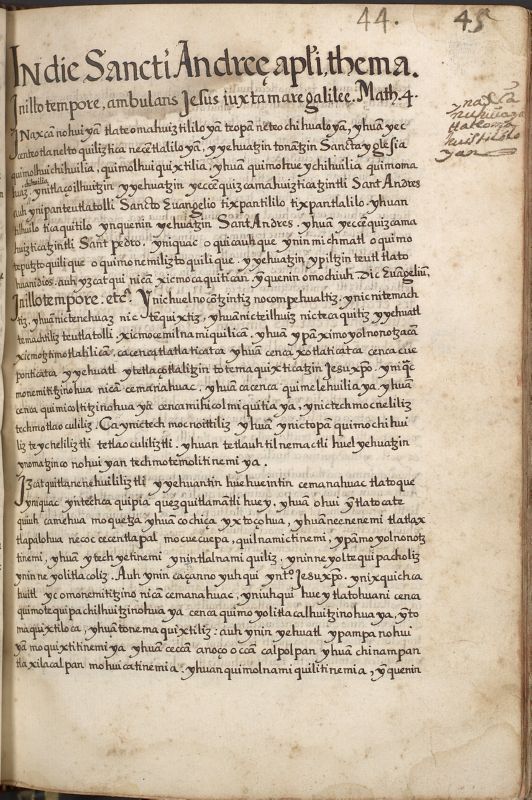 44. 45
In die Sancti Andreę apłi, thema.
In illo tempore, ambulans Jesus iuxta mare galilee. Math. 4.
tlateomahuiztililo yã
yhuã yec
santeotlanelto quiliztica necẽtlalilo yã, yyehuatzin tonãtzin Sancta yglesia
quimolhuichihuilia, quimolhuiquixtilia, yhuã quimottue ychihuilia quimoma
chihuilia
ynitlaçoilhuitzin yyehuatzin yeccẽquizcamahuizticatzintli Sant Andres
auh ynipanteutlatolli Sancto Euangelio tixpantililo tixpantlalilo. yhuan
ticaquitilo ynquenin yehuatzin Sant Andres. yhuã yeccẽquizcama
huizticatzintli Sant pedro. yniquac oquicauhque ynin michmatl oquimo
tepotztoquilique oquimonemiliztoquilique. yyehuatzin ypiltzin teutl tlato
huanidios. auh yzcatqui nicã xicmocaquitican. yquenin omochiuh Dic Euãgeliũ,
In illo tempore. etc. Ynichuel nocẽtzintiz nocompehualtiz, ynicnitemach
tiz, yhuã nictenehuaz nic tẽquixtiz, yhuã nicteilhuiz nictecaquitiz yyehuatl
temachtiliz teutlatolli. xicmocemilnamiquilicã. yhuã
cacenca tlatlaticatca yhuã cenca xotlaticatca cenca cue
ponticatca yyehuatl ytetlaçotlalitzin totemaquixticatzin Jesu xp̃o. yniq̃c
monemititzinohua nicã cemanahuac, yhuã cacenca quimelehuilia ya yhuã
cenca quimicoltitzinohua yã cenca mihicolmiquitia ya, ynictechmocneliliz
techmotlaoculiliz. Ca ynictech mocnoittiliz yhuã ynictopã quimochihui
liz teycneliliztli tetlaoculiliztli. yhuan tetlauhtilnemactli huel yehuatzin
ynomatzinco nohui yan techmotemolitinemi ya.
Izcatqui tlanenehuililiztli yyehuantin huehueintin cemanahuac tlatoque
yniquac yntechca quipia quezquitlamãtli huey. yhuã ohui ỹtlatocate
quiuh camehua moquetza yhuã cochiça yxtoçohua, yhuã neenenemi tlatlax
tlapalohua necoccecentlapal mocuecuepa, quilnamictinemi, ypãmoyolnonotz
tinemi, yhuã ytechyetinemi ynintlalnamiquiliz, yninneyoltequipacholiz
ynin neyolitlacoliz. Auh ynin caçanno yuh qui yn tº Jesu xp̃o. ynixquichca
huitl ycomonemititzino nicã cemanahuac, yniuhqui huey tlatohuani cenca
quimotequipachilhuitzinohua ya cenca quimoyolitlacalhuitzinohua ya, ỹto
maquixtiloca, yhuã tonemaquixtiliz: auh ynin yehuatl ypampa nohui
yã moquixtitinemi ya yhuã ceccã anoço occã calpolpan yhuã chinampan
tlaxilacalpan mohuicatinemi a. yhuan quimolnamiquilitinemi a, ỹquenin